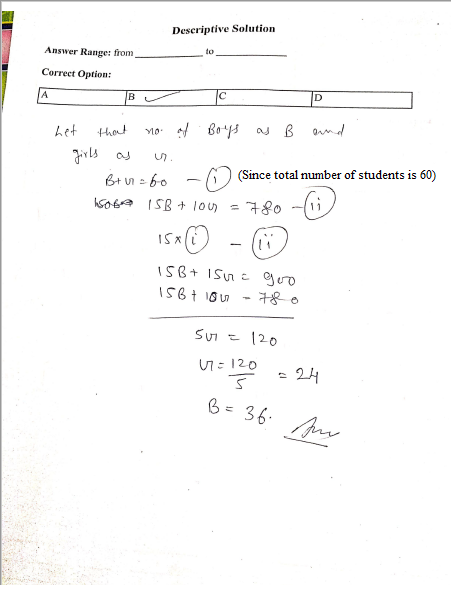 Descriptive Solution
Answer Range: from ____________ to ____________
Correct Option:
A B ✓ C D
Let that no. of Boys as B and
girls as G.
B + G = 60 – (i) (Since total number of students is 60)
15B + 10G = 780 – (ii)
15 x (i) – (ii)
15B + 15G = 900
15B + 10G = 780
5G = 120
G = 120/5 = 24
B = 36. Ans